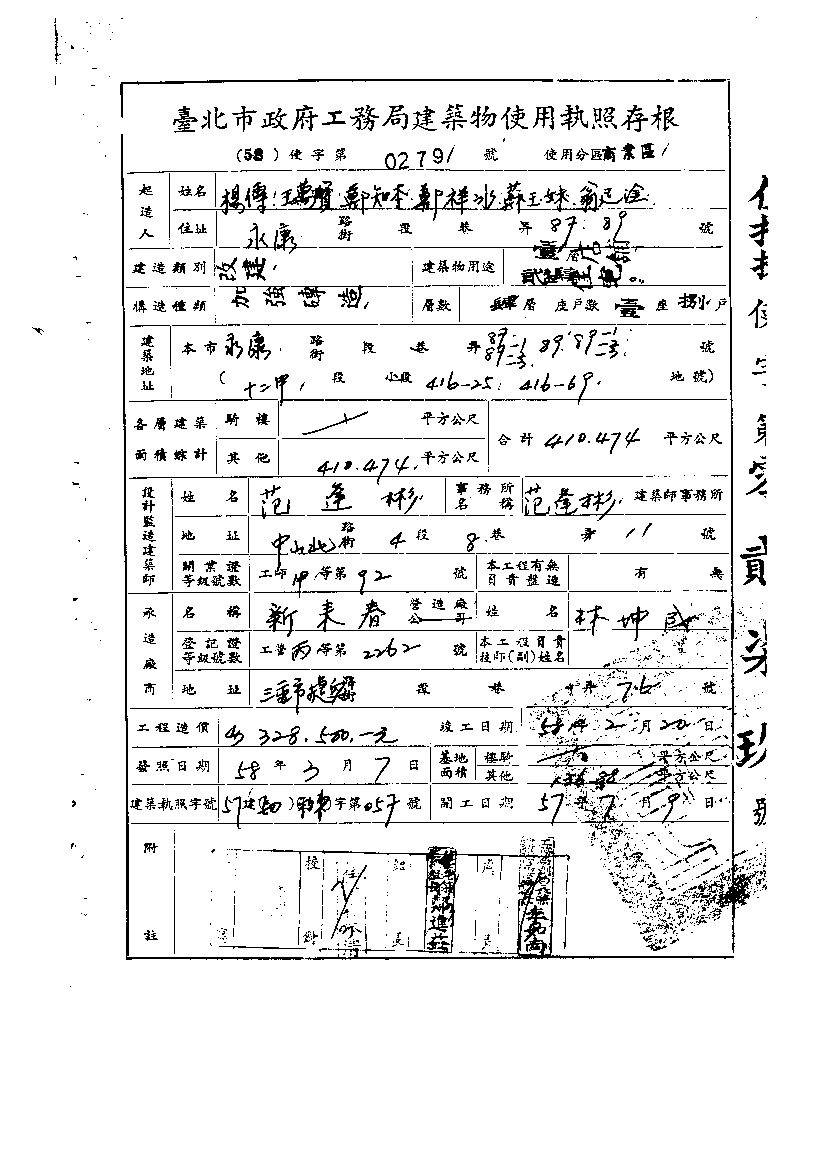 臺北市政府工務局建築物使用執照存根
(58)使字第 0279 號 使用分區商業區
起造人 姓名 楊傳 王萬寶 鄭知本 鄭祥水 蘇王妹
住址 永康 路街 段 巷 弄 87.89 號
建造類別 改建 建築物用途 壹層店舖 住宅
構造種類 加強磚造 層數 肆層 座戶數 壹座捌戶
建築地址 本市永康 路街 段 巷 弄 87-1 89-2 89.89-1 號
(十二甲 段 小段 416-25. 416-69. 地號)
各層建築面積總計 騎樓 平方公尺 合計 410.474 平方公尺
其他 410.474 平方公尺
設計監造建築師 姓名 范逢彬 事務所名稱 范逢彬 建築師事務所
地址 中山北 路街 4 段 8 巷 弄 11 號
開業證等級號數 工師甲等第 92 號 本工程有無負責監造 有 無
承造廠商 名稱 新來春 營造廠公司 姓名 林坤
登記證等級號數 工營丙等第 2262 號 本工程負責技師(副)姓名
地址 三重市 段 巷 弄 76 號
工程造價 328.500.-元 竣工日期 58年2月20日
發照日期 58年3月7日 基地面積 樓騎 平方公尺
其他 平方公尺
建築執照字號 57建 字第057號 開工日期 57年7月9日
附註
使字第零貳柒玖號